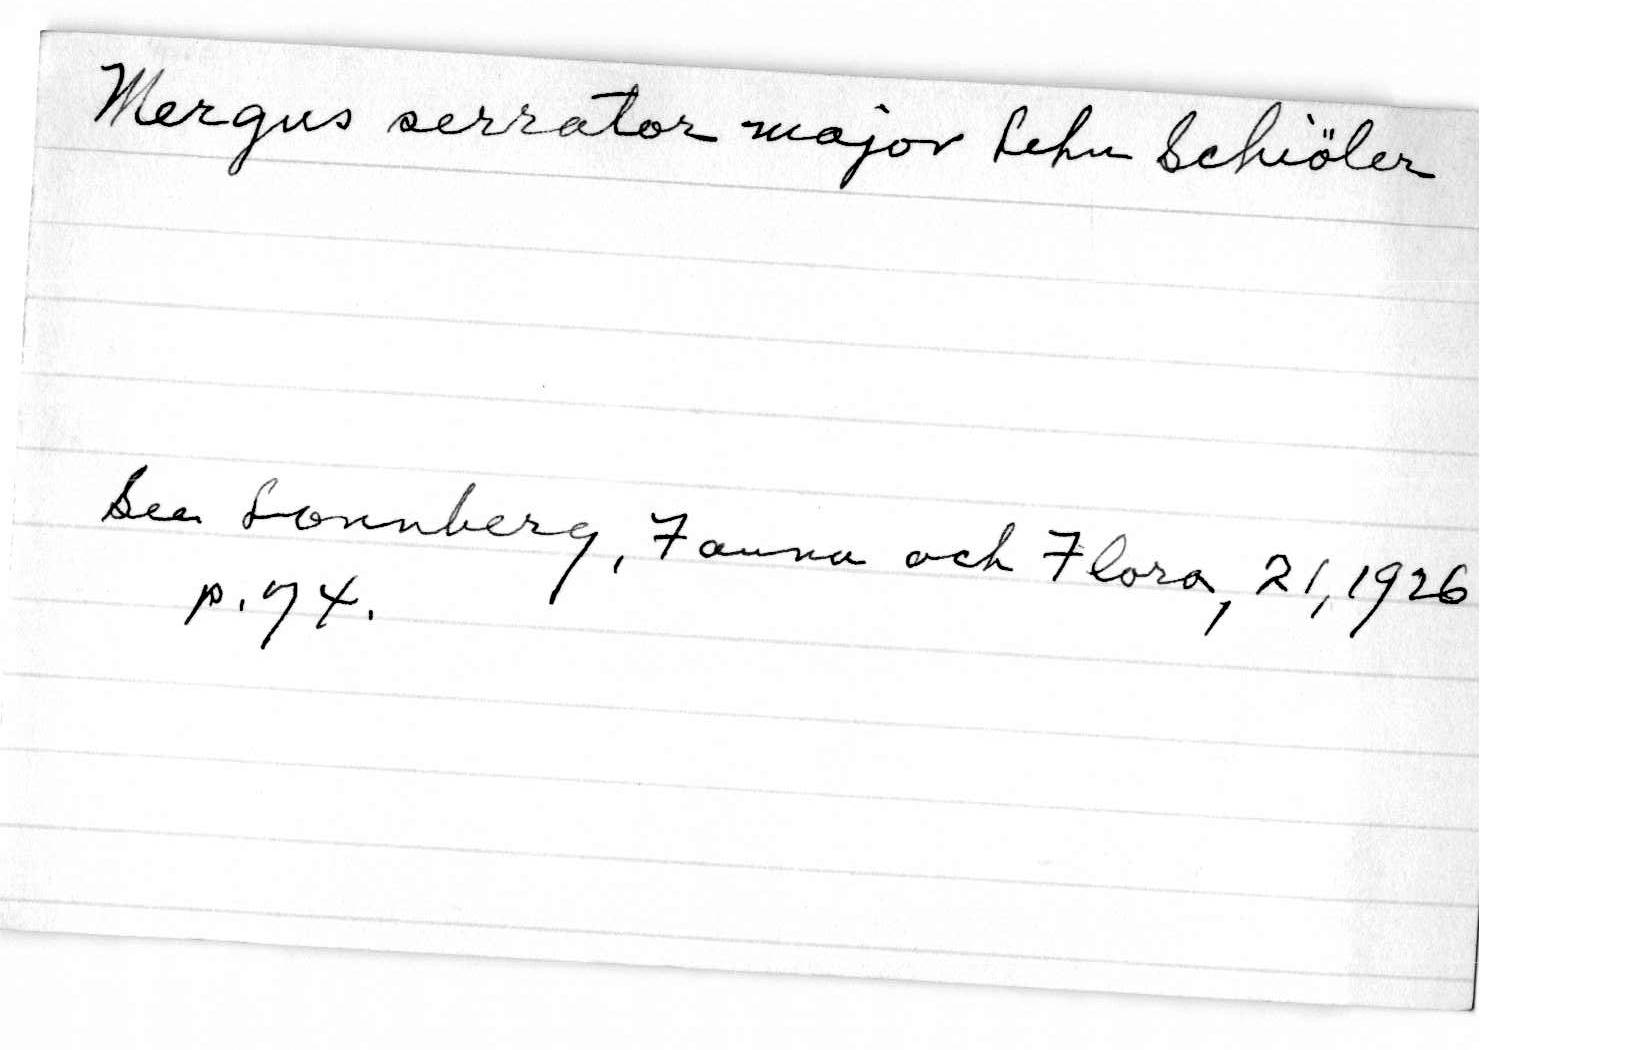 Mergus serrator major Lehn Schiöler
See Lonnberg, Fauna och Flora, 21, 1926
p. 74.